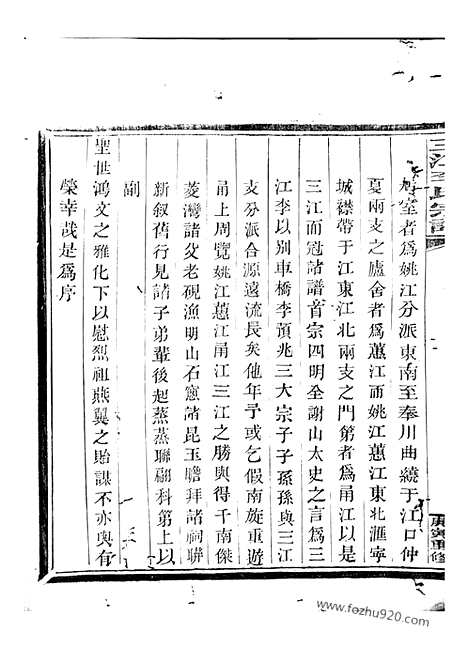 三江李氏宗譜
居室者爲姚江分派東南至奉川曲繞于江口仲
夏兩支之廬舍者爲蕙江而姚江蕙江東北滙寧
城襟帶于江東江北兩支之門第者爲甬江以是
三江而冠諸譜首宗四明全謝山太史之言爲三
江李以別車橋李蕷兆三大宗子子孫孫與三江
支分派合源遠流長矣他年予或乞假南旋重遊
甬上周覽姚江蕙江甬江三江之勝與得千南傑
菱灣諸父老硯漁明山石窻諸昆玉瞻拜諸祠聯
新叙舊行見諸子弟輩後起蒸蒸聯翩科第上以
副
聖世鴻文之雅化下以慰烈祖燕翼之貽謀不亦與有
榮幸哉是爲序
重修
www.fozhu920.com